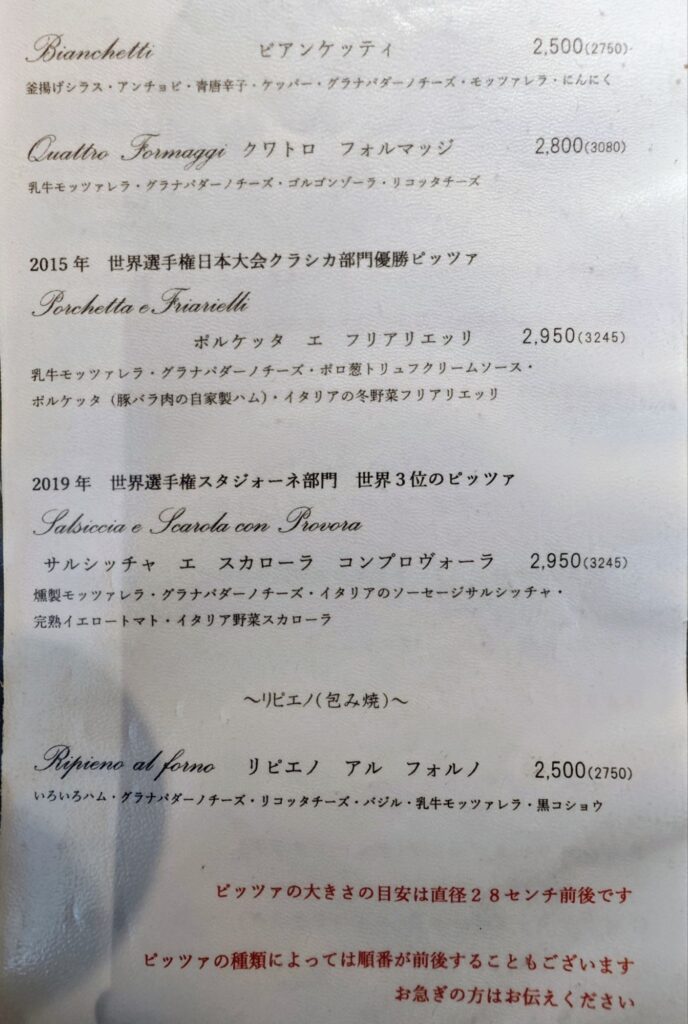 Bianchetti ビアンケッティ 2,500(2750)
釜揚げシラス・アンチョビ・青唐辛子・ケッパー・グラナパダーノチーズ・モッツァレラ・にんにく
Quattro Formaggi クワトロ フォルマッジ 2,800(3080)
乳牛モッツァレラ・グラナパダーノチーズ・ゴルゴンゾーラ・リコッタチーズ
2015年 世界選手権日本大会クラシカ部門優勝ピッツァ
Porchetta e Friarielli
ポルケッタ エ フリアリエッリ 2,950(3245)
乳牛モッツァレラ・グラナパダーノチーズ・ポロ葱トリュフクリームソース・
ポルケッタ（豚バラ肉の自家製ハム）・イタリアの冬野菜フリアリエッリ
2019年 世界選手権スタジォーネ部門 世界３位のピッツァ
Salsiccia e Scarola con Provora
サルシッチャ エ スカローラ コンプロヴォーラ 2,950(3245)
燻製モッツァレラ・グラナパダーノチーズ・イタリアのソーセージサルシッチャ・
完熟イエロートマト・イタリア野菜スカローラ
～リピエノ（包み焼）～
Ripieno al forno リピエノ アル フォルノ 2,500(2750)
いろいろハム・グラナパダーノチーズ・リコッタチーズ・バジル・乳牛モッツァレラ・黒コショウ
ピッツァの大きさの目安は直径２８センチ前後です
ピッツァの種類によっては順番が前後することもございます
お急ぎの方はお伝えください